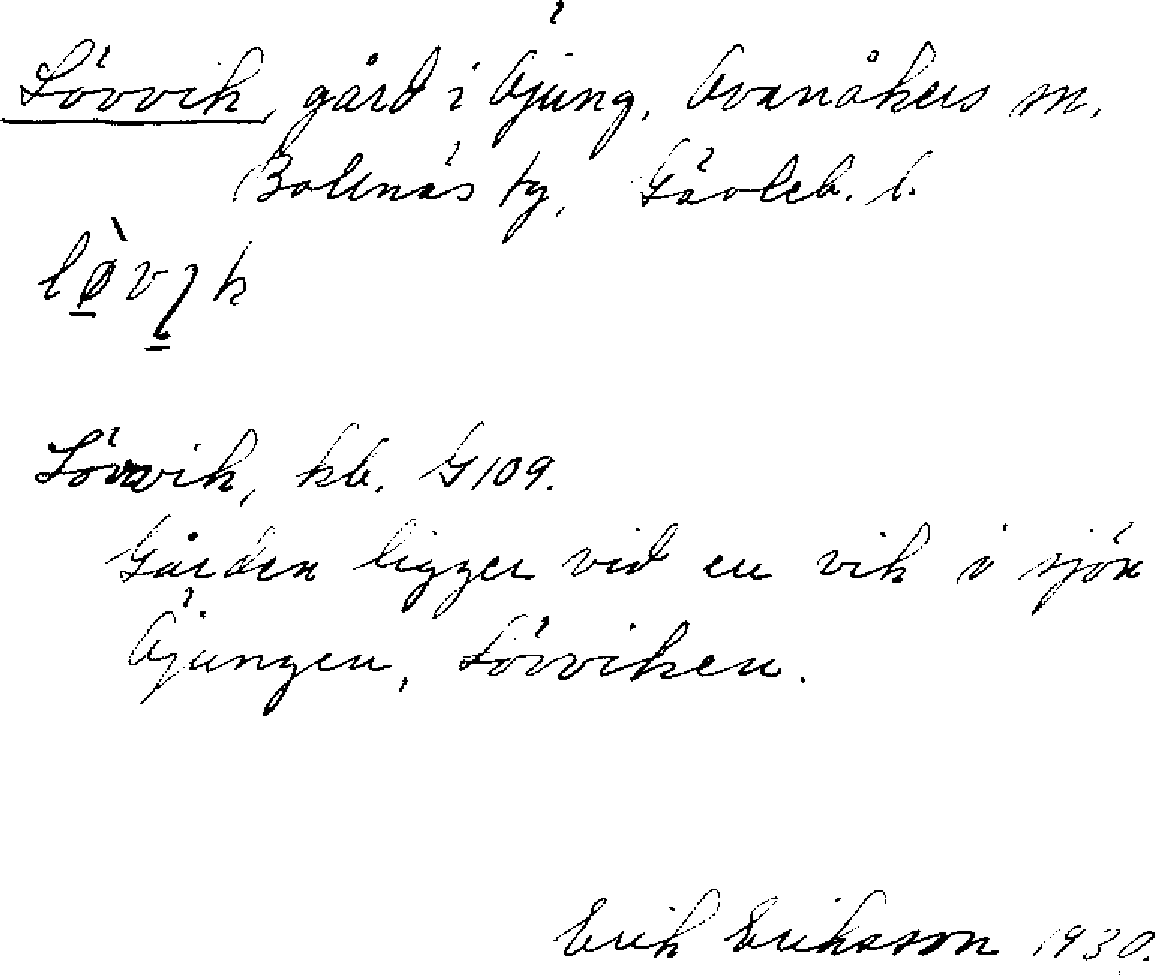 Lövvik, gård i Öjung, Ovanåkers sn.
Bollnäs tg, Gävleb. l.
Lövvik, kb. G109.
Gården ligger vid en vik i sjön
Öjungen, Lövviken.
Erik Eriksson 1930.